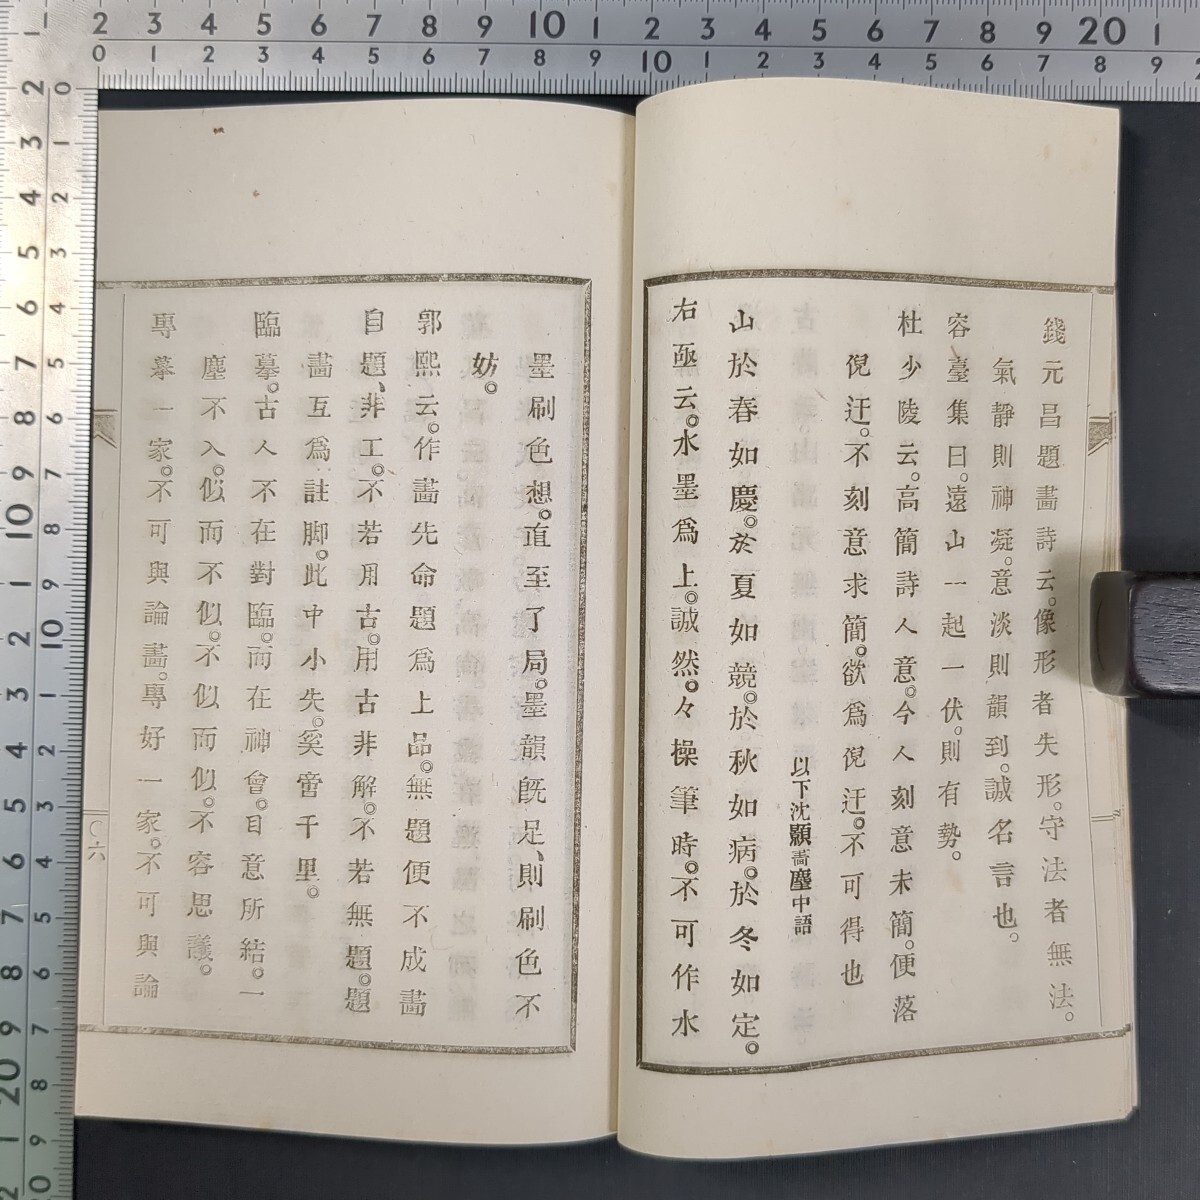 錢元昌題畫詩云。像形者失形。守法者無法。
氣靜則神凝。意淡則韻到。誠名言也。
容臺集曰。遠山一起一伏。則有勢。
杜少陵云。高簡詩人意。今人刻意未簡。便落
倪迂。不刻意求簡。欲爲倪迂。不可得也
以下沈顥畵麈中語
山於春如慶。於夏如競。於秋如病。於冬如定。
右丞云。水墨爲上。誠然。々操筆時。不可作水
墨刷色想。直至了局。墨韻既足、則刷色不
妨。
郭熙云。作畵先命題爲上品。無題便不成畵
自題、非工。不若用古。用古非解。不若無題。題
畵互爲註脚。此中小失。奚啻千里。
臨摹。古人不在對臨。而在神會。目意所結。一
塵不入。似而不似。不似而似。不容思議。
專摹一家。不可與論畵。專好一家。不可與論
〇六